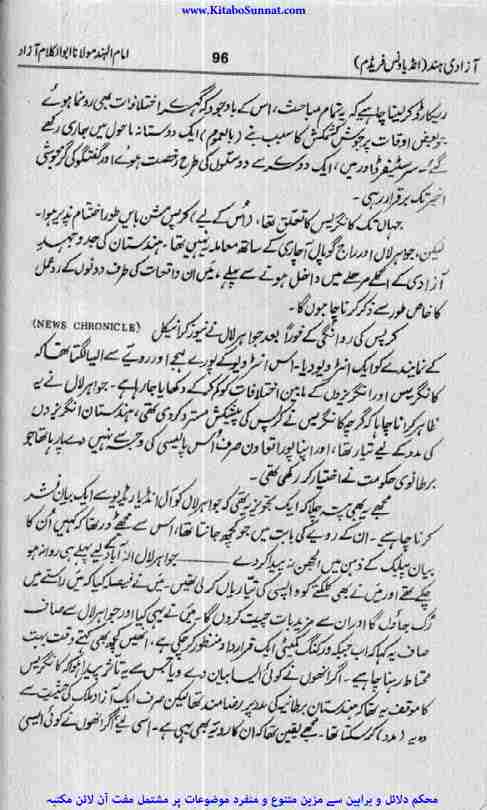 www.KitaboSunnat.com
آزادی ہند (انڈیا ونس فریڈم)
96
امام الہند مولانا ابوالکلام آزاد
ریکارڈ کر لینا چاہیے کہ یہ تمام مباحث، اس کے باوجود کہ گہرے اختلافات بھی رونما ہوئے
جو بعض اوقات پرجوش کشمکش کا سبب بنے (بالعموم) ایک دوستانہ ماحول میں جاری رکھے
گئے۔ سر سٹیفرڈ اور میں، ایک دوسرے سے دوستوں کی طرح رخصت ہوئے اور گفتگو کی گرمجوشی
اخیر تک برقرار رہی۔
جہاں تک کانگریس کا تعلق تھا، (اُس کے لیے) کرپس مشن بایں طور اختتام پذیر ہوا۔
لیکن، جواہر لال اور راج گوپال آچاری کے ساتھ معاملہ یہ نہیں تھا۔ ہندستان کی جدوجہدِ
آزادی کے اگلے مرحلے میں داخل ہونے سے پہلے، میں ان واقعات کی طرف دونوں کے ردعمل
کا خاص طور سے ذکر کرنا چاہوں گا۔
کرپس کی روانگی کے فوراً بعد جواہر لال نے نیوز کرانیکل (NEWS CHRONICLE)
کے نمایندے کو ایک انٹرویو دیا۔ اس انٹرویو کے پورے لہجے اور رویے سے ایسا لگتا تھا کہ
کانگریس اور انگریزوں کے مابین اختلافات کو کم کر کے دکھایا جا رہا ہے۔ جواہر لال نے یہ
ظاہر کرنا چاہا کہ گرچہ کانگریس نے کرپس کی پیشکش مسترد کر دی تھی، ہندستان انگریزوں
کی مدد کے لیے تیار تھا، اور اپنا پورا تعاون صرف اُس پالیسی کی وجہ سے نہیں دے پا رہا تھا جو
برطانوی حکومت نے اختیار کر رکھی تھی۔
مجھے یہ بھی پتہ چلا کہ ایک تجویز یہ تھی کہ جواہر لال کو آل انڈیا ریڈیو سے ایک بیان نشر
کرنا چاہیے۔ ان کے رویے کی بابت میں جو کچھ جانتا تھا، اس سے مجھے ڈر تھا کہ کہیں اُن کا
بیان پبلک کے ذہن میں الجھن نہ پیدا کر دے۔ جواہر لال الٰہ آباد کے لیے پہلے ہی روانہ ہو
چکے تھے اور میں نے بھی کلکتے کو واپسی کی تیاریاں کر لی تھیں۔ میں نے فیصلہ کیا کہ میں راستے میں
رُک جاؤں گا اور ان سے مزید بات چیت کروں گا۔ میں نے یہی کیا اور جواہر لال سے صاف
صاف یہ کہا کہ اب جبکہ ورکنگ کمیٹی ایک قرارداد منظور کر چکی ہے، انھیں کچھ بھی کہتے وقت بہت
محتاط رہنا چاہیے۔ اگر انھوں نے کوئی ایسا بیان دے دیا جس سے یہ تاثر پیدا ہو کہ کانگریس
کا موقف یہ تھا کہ ہندستان برطانیہ کی مدد پر رضامند تھا لیکن صرف ایک آزاد ملک کی حیثیت سے
وہ یہ (مدد) کر سکتا تھا۔ مجھے یقین تھا کہ ان کا رویہ بھی یہی ہے۔ اسی لیے اگر انھوں نے کوئی ایسی
محکم دلائل و براہین سے مزین متنوع و منفرد موضوعات پر مشتمل مفت آن لائن مکتبہ